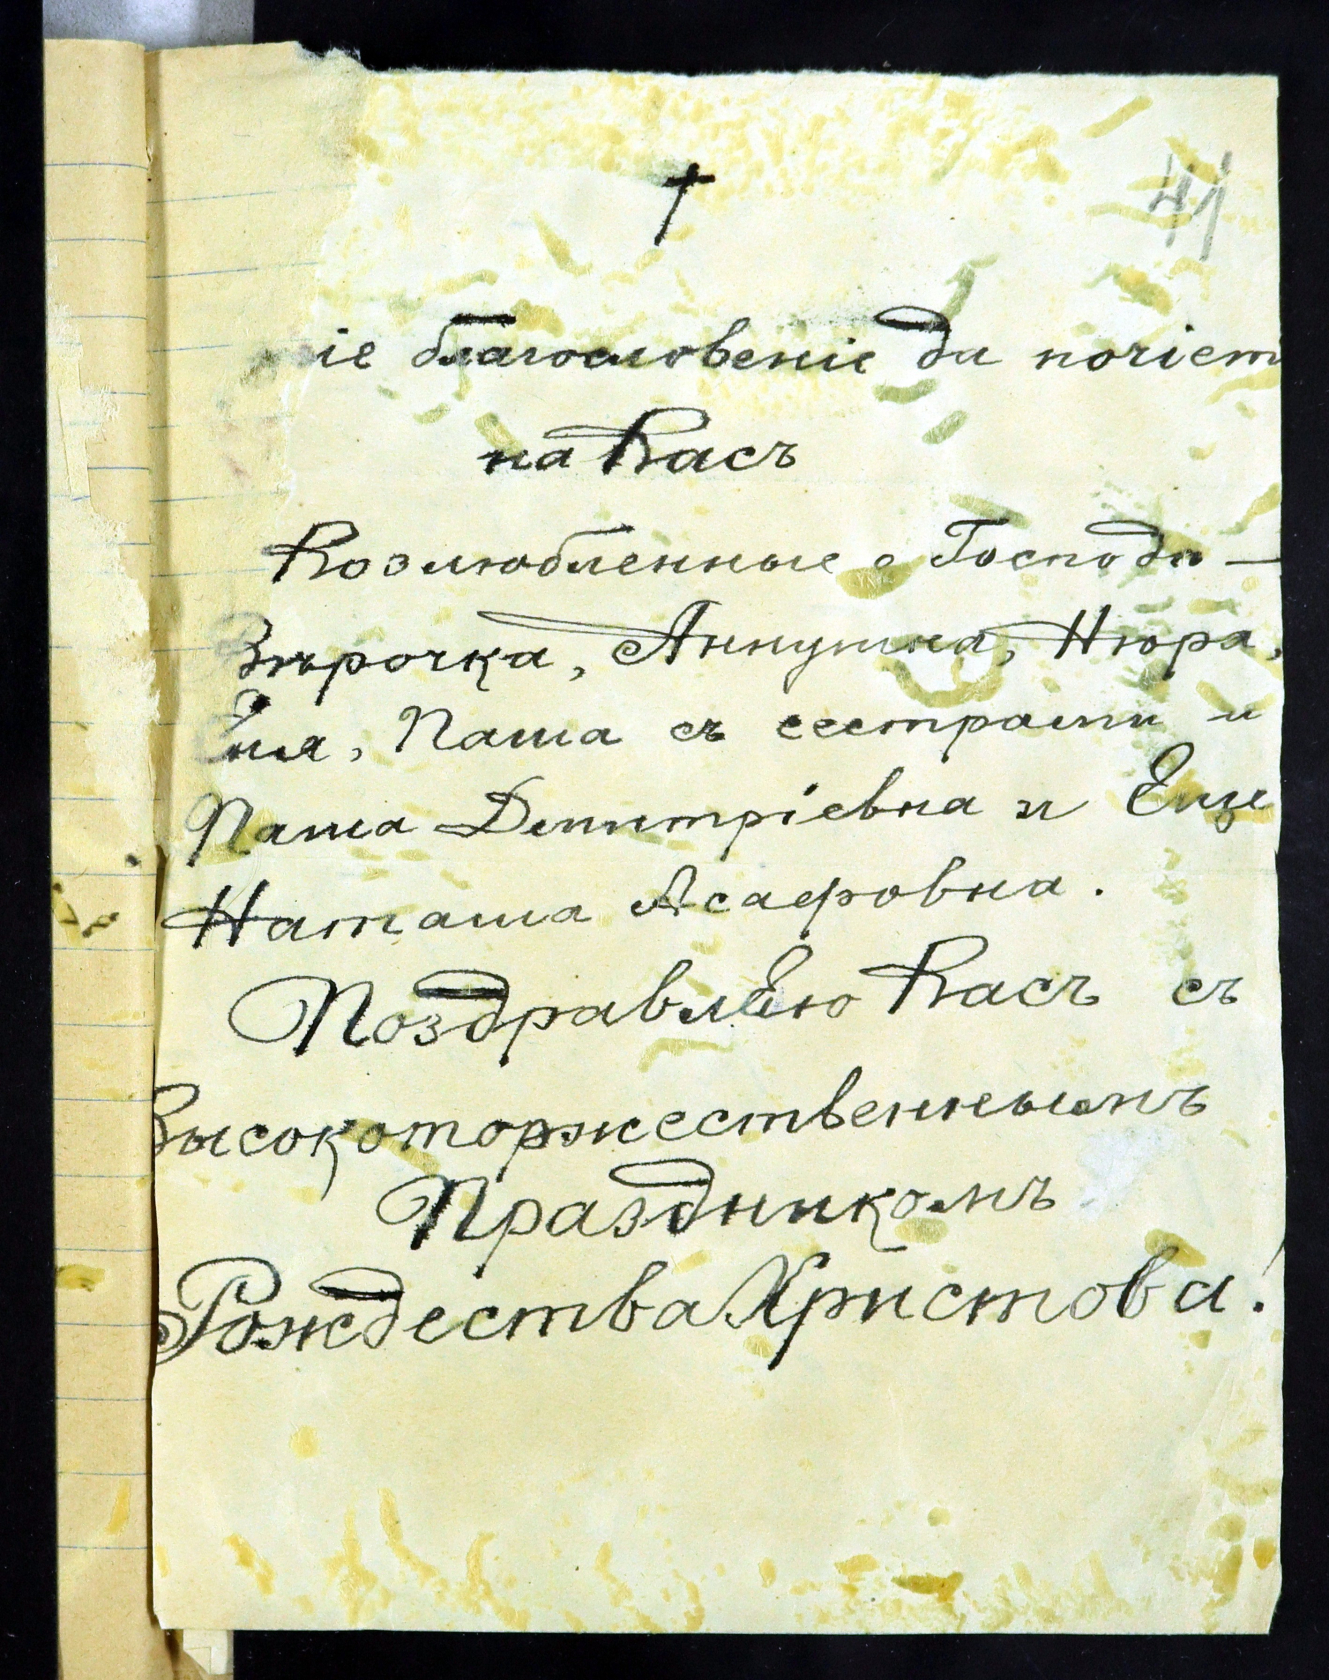 41
іе благословеніе да почіет
на Васъ
Возлюбленные о Господи —
Вѣрочка, Аннушка, Нюра,
Паша съ сестрами и
Паша Димитріевна и Еще
Наташа Асафовна.
Поздравляю Васъ съ
Высокоторжественнымъ
Праздникомъ
Рождества Христова!